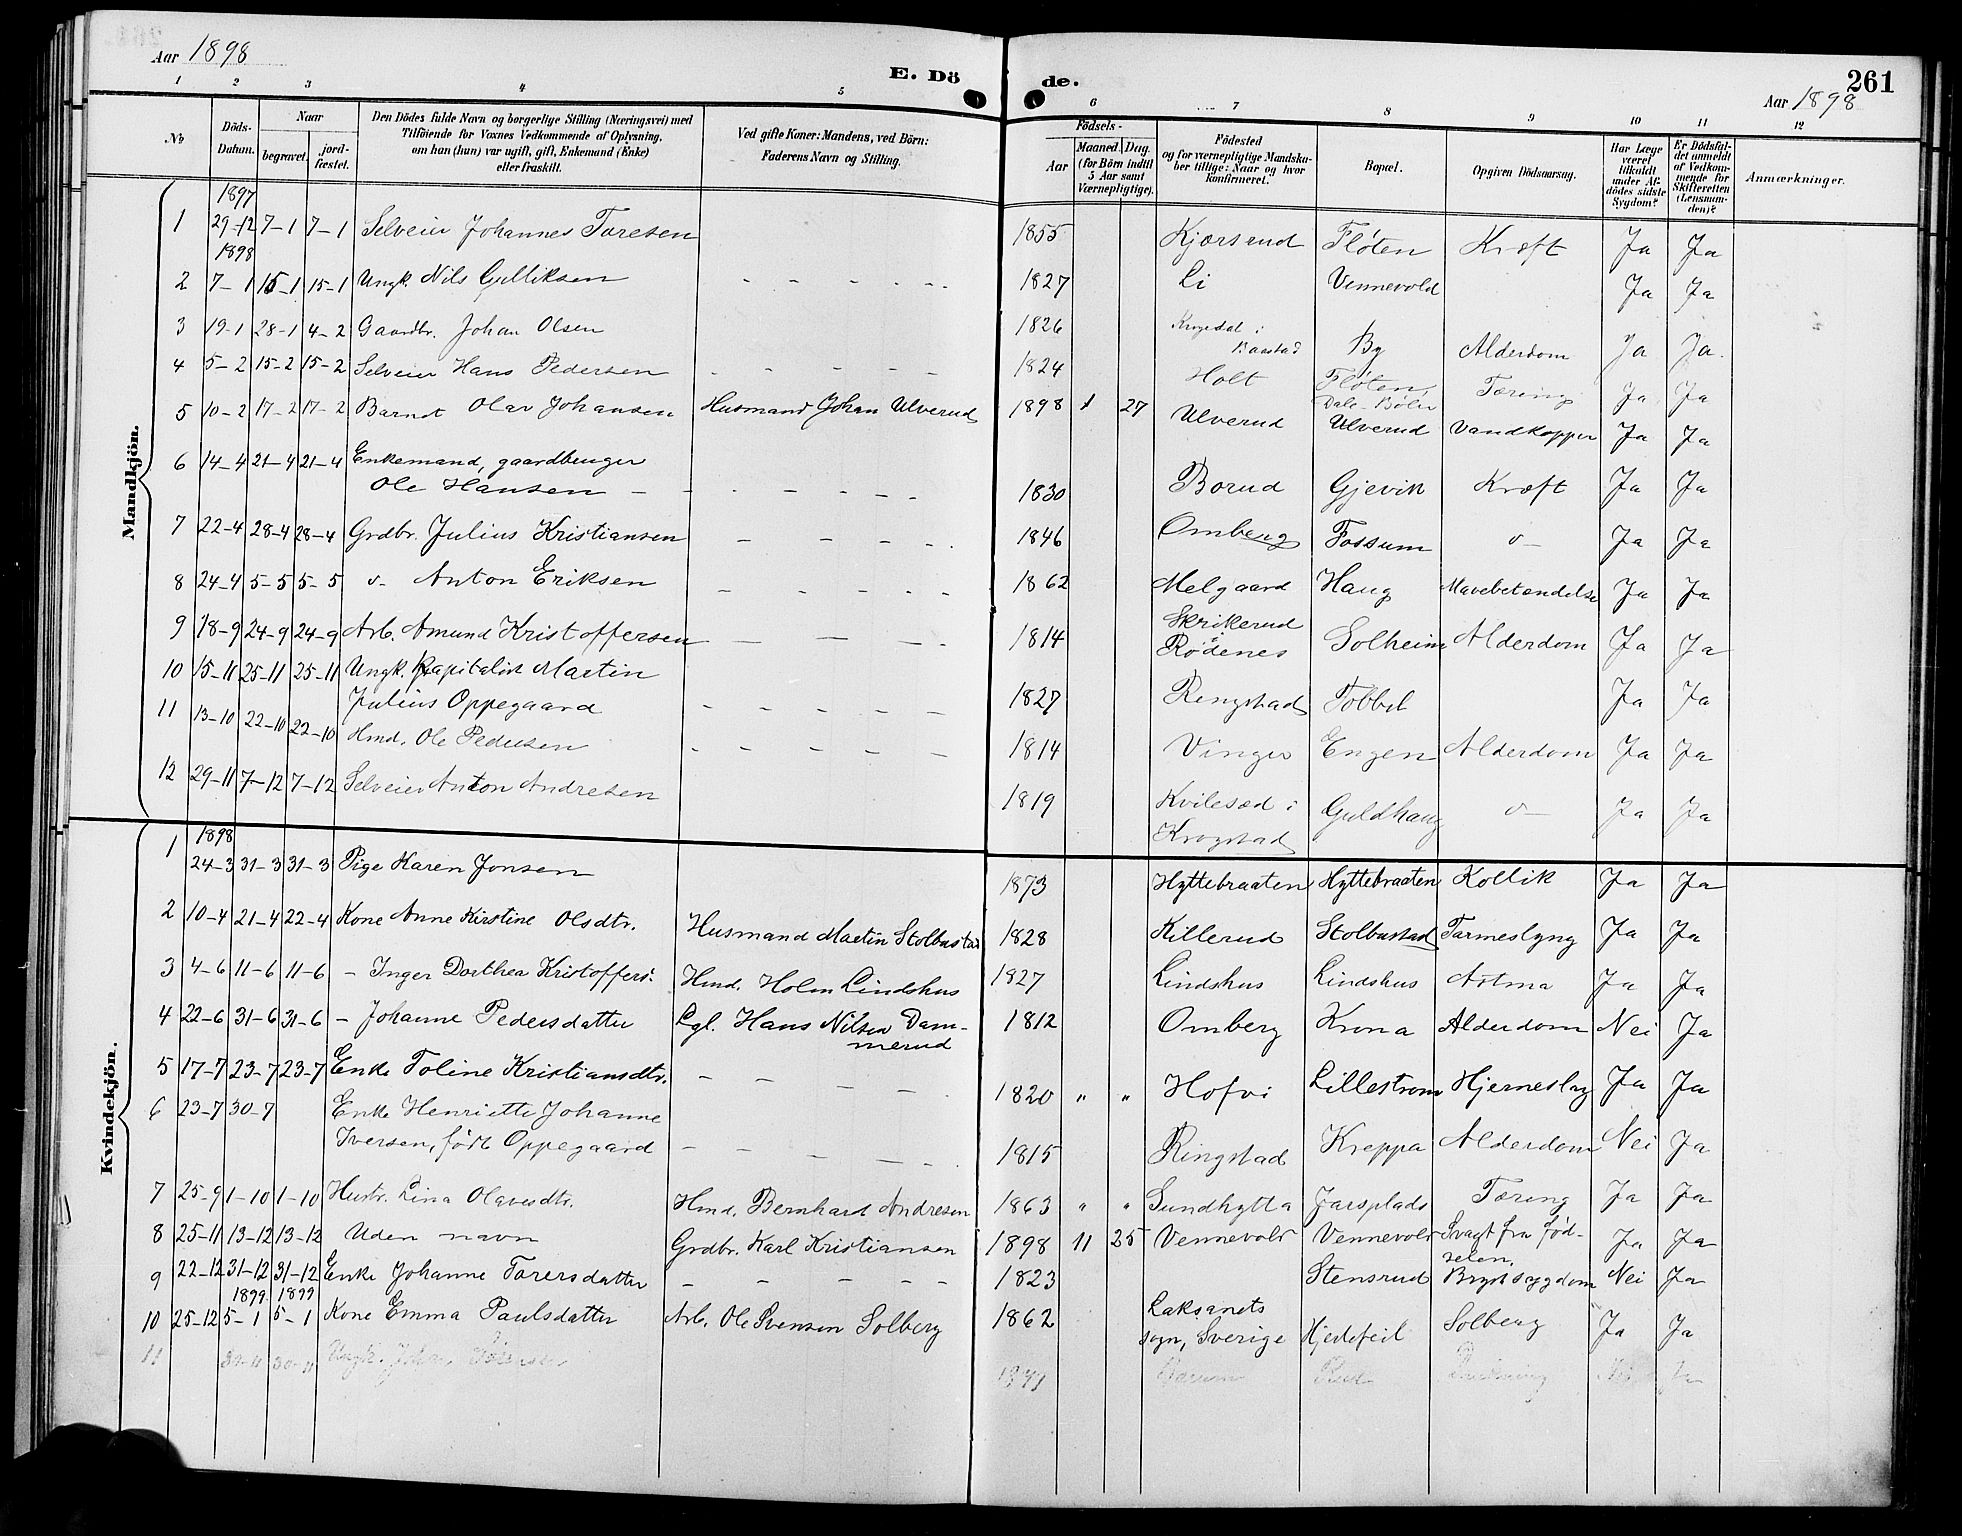 Aar 1898
E. Dö de.
261
Aar 1898
1 2 3 4 5 6 7 8 9 10 11 12
No
Döds-Datum.
Naar
begravet.
jord-fæstet.
Den Dödes fulde Navn og borgerlige Stilling (Næringsvei) med
Tilföiende for Voxnes Vedkommende af Oplysning,
om han (hun) var ugift, gift, Enkemand (Enke)
eller fraskilt.
Ved gifte Koner: Mandens, ved Börn:
Faderens Navn og Stilling.
Födsels-
Aar
Maaned. Dag.
(for Börn indtil
5 Aar samt
Værnepligtige).
Födested
og for værnepligtige Mandska-
ber tillige: Naar og hvor
konfirmeret.
Bopæl.
Opgiven Dödsaarsag.
Har Læge
været
tilkaldt
under Af-
dödes sidste
Sygdom?
Er Dödsfal-
det anmeldt
af Vedkom-
mende for
Skifteretten
(Lensman-
den)?
Anmærkninger.
Mandkjön.
1897
1 29-12 7-1 7-1 Selveier Johannes Toresen 1855 Kjærsrud Fløten Kræft Ja Ja
1898
2 7-1 15-1 15-1 Ungk. Nils Gulliksen - - - - - 1827 Li Vennevold Ja Ja
3 19-1 28-1 4-2 Gaardbr. Johan Olsen 1826 i Baastad By Alderdom Ja Ja.
4 5-2 15-2 15-2 Selveier Hans Pedersen - - - - - 1824 Holt Fløten, Tæring Ja Ja
5 10-2 17-2 17-2 Barnet Olav Johansen Husmand Johan Ulverud 1898 1 27 Ulverud Ulverud Vandkopper Ja Ja
6 14-4 21-4 21-4 Enkemand, gaardbruger
Ole Hansen - - - - - - 1830 Borud Gjevik Kræft Ja Ja
7 22-4 28-4 28-4 Grdbr. Julius Kristiansen - - - - - 1846 Omberg Fossum v- Ja Ja
8 24-4 5-5 5-5 v- Anton Eriksen - - - - - 1862 Melgaard Haug Mavebetændelse Ja Ja
9 18-9 24-9 24-9 Arb. Amund Kristoffersen - - - - 1814 Skrikerud
i Rødenes Solheim Alderdom Ja Ja
10 15-11 25-11 25-11 Ungk. Kapitalist Martin
Julius Oppegaard - - - - - 1827 Ringstad Tobbel Ja Ja
11 13-10 22-10 22-10 Hmd. Ole Pedersen - - - - - 1814 Vinger Engen Alderdom Ja Ja
12 29-11 7-12 7-12 Selveier Anton Andresen 1819 i
Krogstad Guldhaug v- Ja Ja
Kvindekjön.
1898
1 24-3 31-3 31-3 Pige Karen Jonsen 1873 Hyttebraaten Hyttebraaten Kollik Ja Ja
2 10-4 21-4 22-4 Kone Anne Kirstine Olsdtr. Husmand Martin Stolbustad 1828 Killerud Stolbustad Tarmeslyng Ja Ja
3 4-6 11-6 11-6 - Inger Dorthea Kristoffers: Hmd. Holm Lindshus 1827 Lindshus Lindshus Astma Ja Ja
4 22-6 31-6 31-6 - Johanne Pedersdatter Lgl. Hans Nilsen Dam-
merud 1812 Omberg Krona Alderdom Nei Ja
5 17-7 23-7 23-7 Enke Toline Kristiansdtr. - - - - 1820 " " Hofvi Lillestrøm Hjerneslag Ja Ja
6 23-7 30-7 Enke Henriette Johanne
Iversen, født Oppegaard - - - - - 1815 Ringstad Kreppa Alderdom Nei Ja
7 25-9 1-10 1-10 Hustr. Lina Olavesdtr. Hmd. Bernhard Andresen 1863 " " Sundhytta Jarsplads Tæring Ja Ja
8 25-11 13-12 13-12 Uden navn Grdbr. Karl Kristiansen 1898 11 25 Vennevold Vennevold Svagt fra fød-
selen. Ja Ja
9 22-12 31-12 31-12 Enke Johanne Torersdatter - - - - - 1823 Stensrud Brystsygdom Nei Ja
1899 1899
10 25-12 5-1 5-1 Kone Emma Paulsdatter Arb. Ole Svensen Solberg 1862 Laksanets
sogn, Sverige Solberg Ja Ja
11 30-11 Ungk. Johan Ja